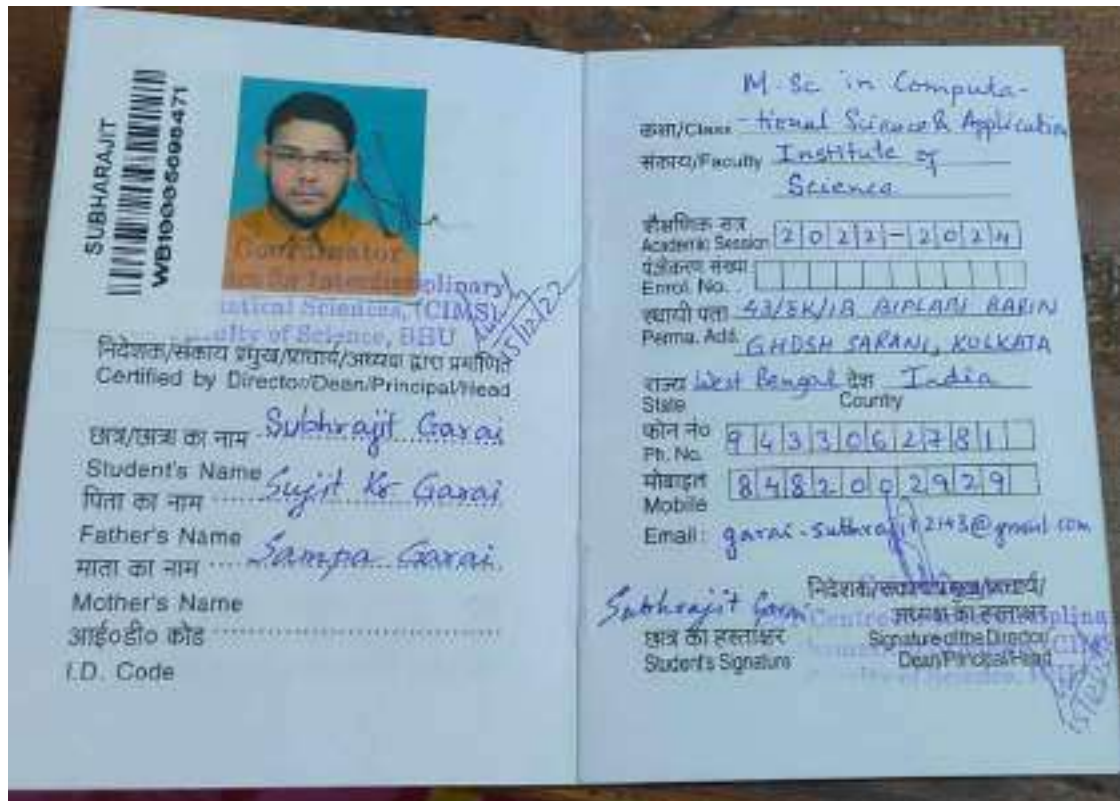 SUBHARAJIT
Coordinator
for Interdisciplinary
Sciences, (CIMS)
of Science, BHU
15/12/22
निदेशक/संकाय प्रमुख/प्राचार्य/अध्यक्ष द्वारा प्रमाणित
Certified by Director/Dean/Principal/Head
छात्र/छात्रा का नाम Subhrajit Garai
Student's Name
पिता का नाम Sujit Kr Garai
Father's Name
माता का नाम Sampa Garai
Mother's Name
आई०डी० कोड
I.D. Code
M.Sc in Computa-
कक्षा/Class -tional Science & Application
संकाय/Faculty Institute of
Science
शैक्षणिक सत्र
Academic Session 2022-2024
पंजीकरण संख्या
Enrol. No.
स्थायी पता 43/3K/1B BIPLABI BARIN
Perma. Add. GHOSH SARANI, KOLKATA
राज्य West Bengal देश India
State Country
फोन नं० 9433062781
Ph. No.
मोबाइल 8482002929
Mobile
Email: garai.subhrajit2143@gmail.com
निदेशक/संकाय प्रमुख/प्राचार्य/
Subhrajit Garai अध्यक्ष का हस्ताक्षर
छात्र का हस्ताक्षर Signature of the Director/
Student's Signature Dean/Principal/Head